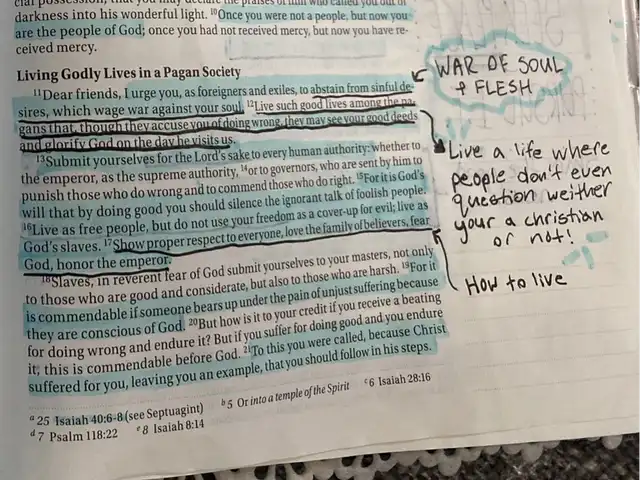 cial possession, that you may declare the praises of him who called you out of
darkness into his wonderful light. ¹⁰Once you were not a people, but now you
are the people of God; once you had not received mercy, but now you have re-
ceived mercy.
Living Godly Lives in a Pagan Society
¹¹Dear friends, I urge you, as foreigners and exiles, to abstain from sinful de-
sires, which wage war against your soul. ¹²Live such good lives among the pa-
gans that, though they accuse you of doing wrong, they may see your good deeds
and glorify God on the day he visits us.
¹³Submit yourselves for the Lord's sake to every human authority: whether to
the emperor, as the supreme authority, ¹⁴or to governors, who are sent by him to
punish those who do wrong and to commend those who do right. ¹⁵For it is God's
will that by doing good you should silence the ignorant talk of foolish people.
¹⁶Live as free people, but do not use your freedom as a cover-up for evil; live as
God's slaves. ¹⁷Show proper respect to everyone, love the family of believers, fear
God, honor the emperor.
¹⁸Slaves, in reverent fear of God submit yourselves to your masters, not only
to those who are good and considerate, but also to those who are harsh. ¹⁹For it
is commendable if someone bears up under the pain of unjust suffering because
they are conscious of God. ²⁰But how is it to your credit if you receive a beating
for doing wrong and endure it? But if you suffer for doing good and you endure
it, this is commendable before God. ²¹To this you were called, because Christ
suffered for you, leaving you an example, that you should follow in his steps.
a 25 Isaiah 40:6-8 (see Septuagint) b 5 Or into a temple of the Spirit c 6 Isaiah 28:16
d 7 Psalm 118:22 e 8 Isaiah 8:14
WAR OF SOUL
+ FLESH
Live a life where
people don't even
question weither
your a christian
or not!
How to live